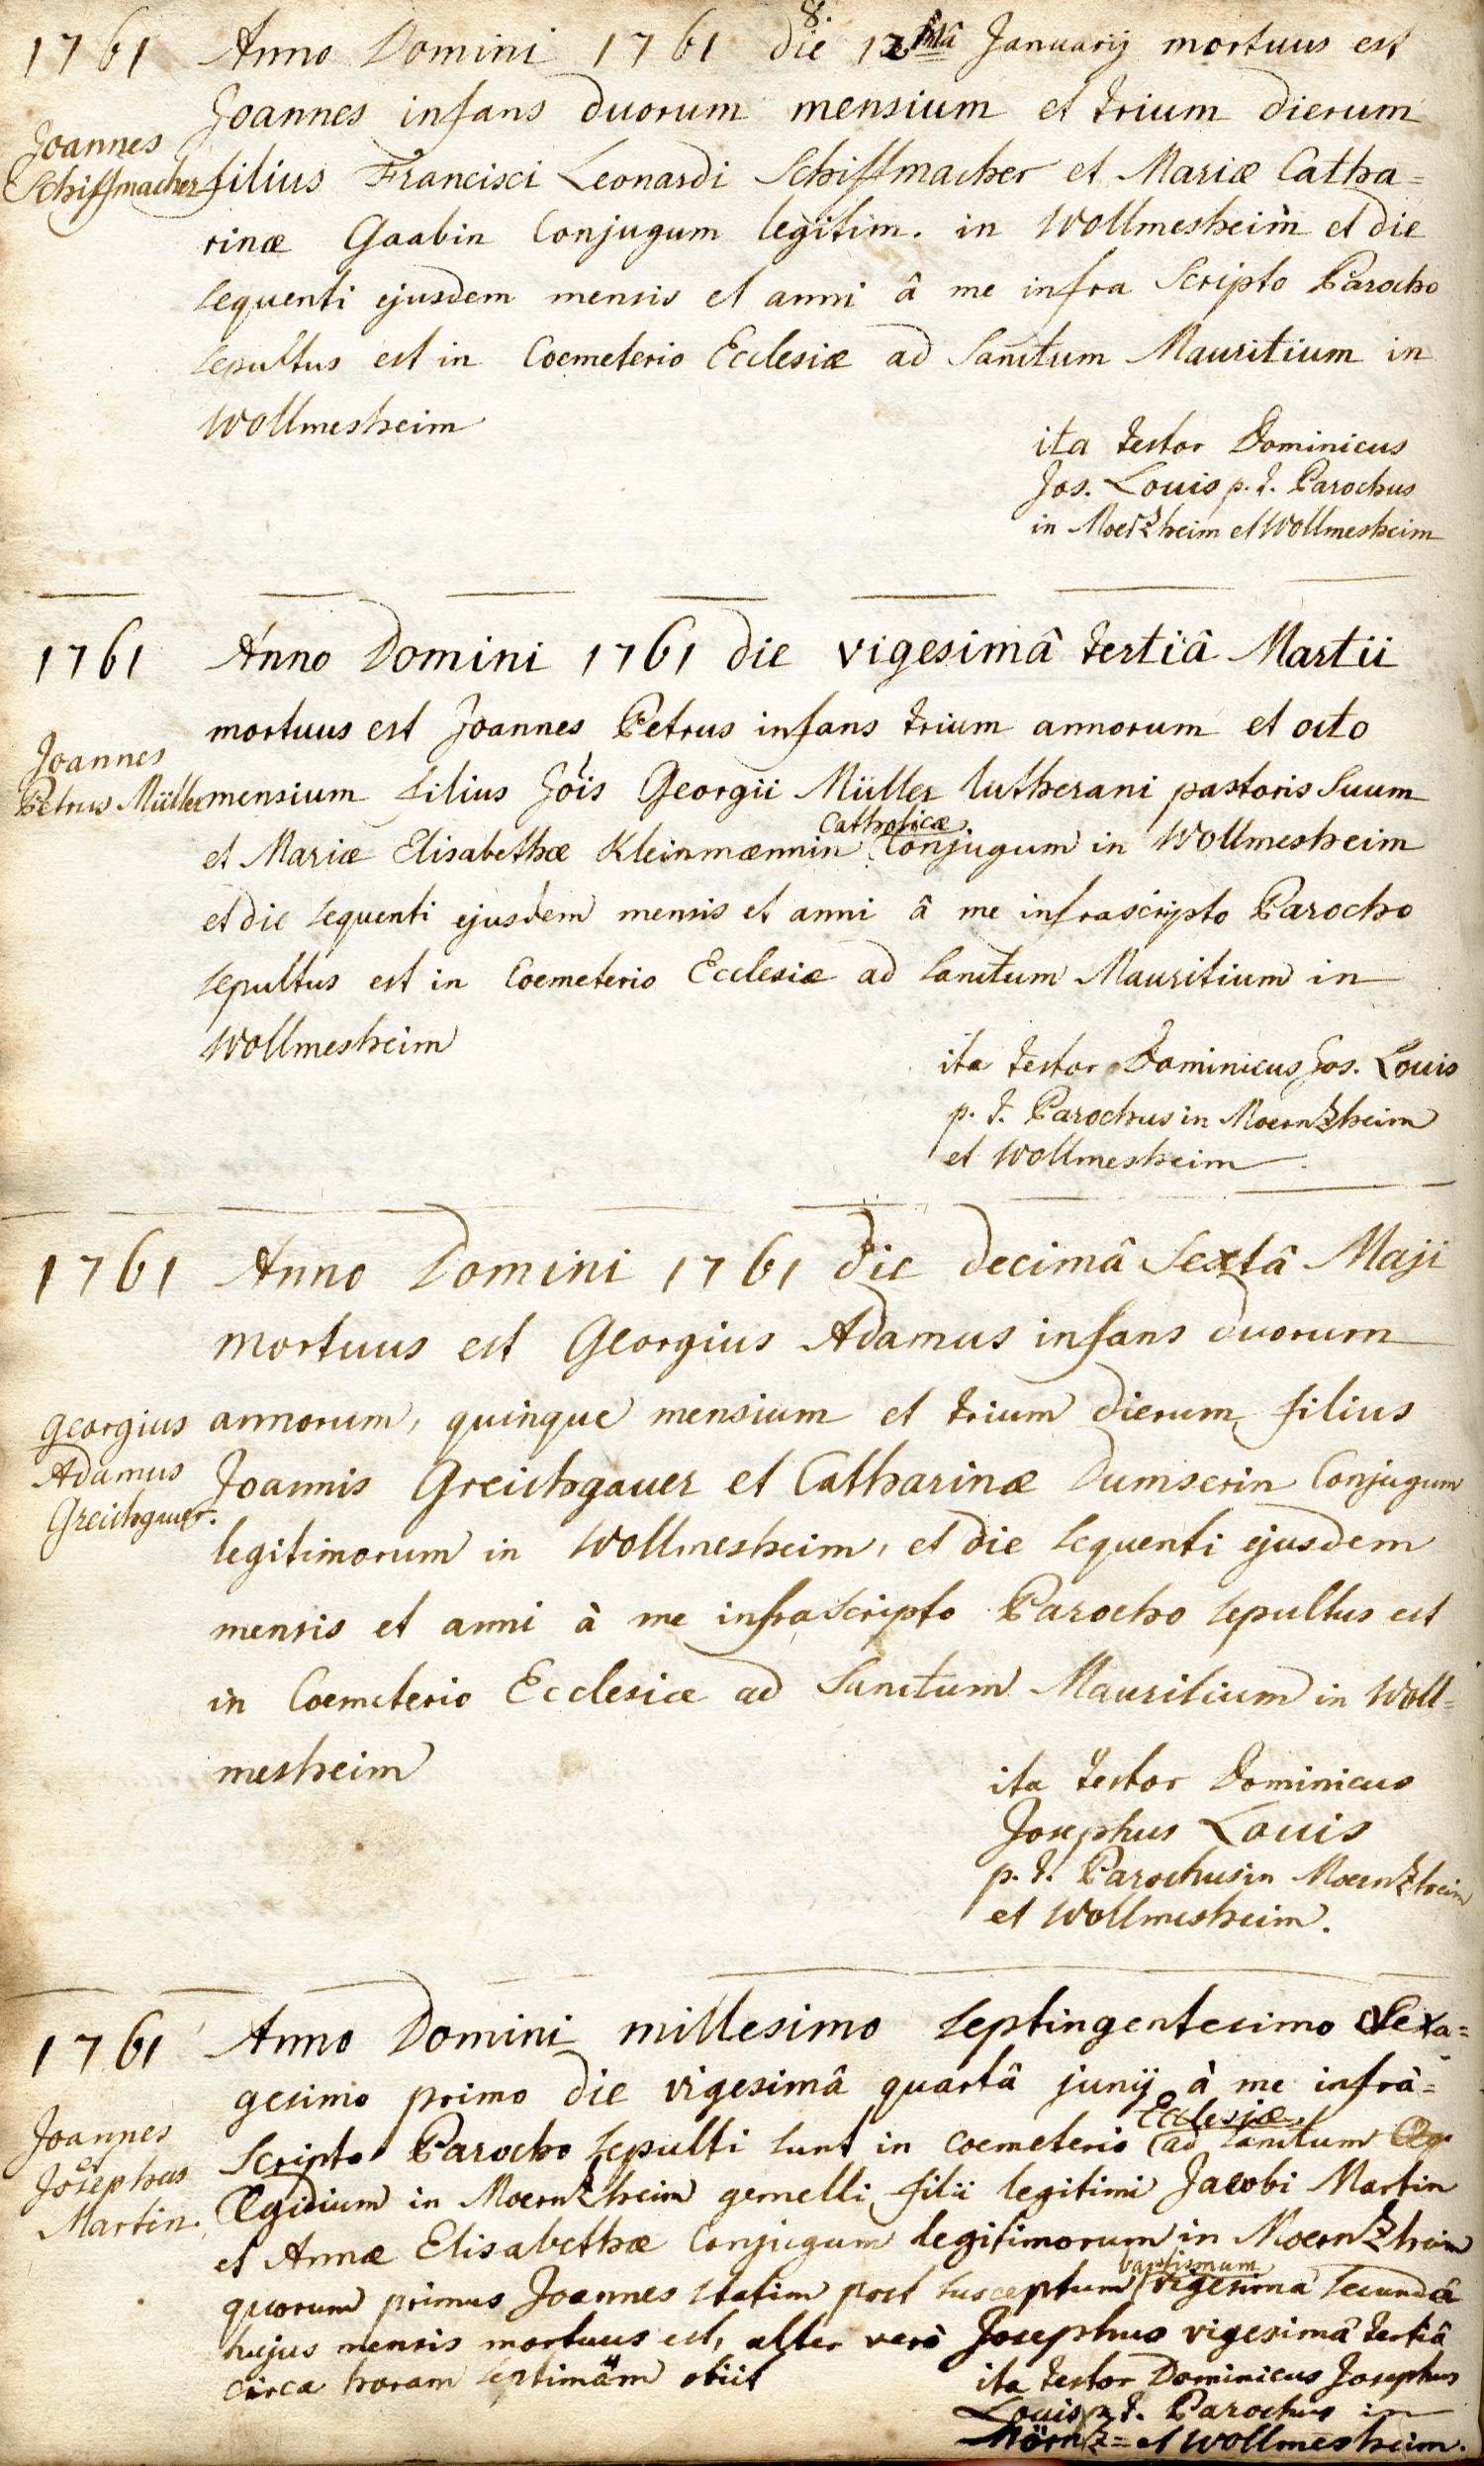 8.
1761 Anno Domini 1761 die 12 Januarij mortuus est
Joannes infans duorum mensium et trium dierum
Joannes
Schiffmacher filius Francisci Leonardi Schiffmacher et Mariæ Catha=
rinæ Gaabin Conjugum legitim. in Wollmesheim et die
sequenti ejusdem mensis et anni â me infra Scripto Parocho
sepultus est in Coemeterio Ecclesiæ ad Sanctum Mauritium in
Wollmesheim
ita testor Dominicus
Jos. Louis p. t. Parochus
in Moerzheim et Wollmesheim
1761 Anno Domini 1761 die vigesimâ tertiâ Martii
mortuus est Joannes Petrus infans trium annorum et octo
Joannes
Petrus Müller mensium filius Jois Georgii Müller lutherani pastoris Suum
Catholicæ
et Mariæ Elisabethæ Kleinmænnin Conjugum in Wollmesheim
et die sequenti ejusdem mensis et anni â me infrascripto Parocho
sepultus est in Coemeterio Ecclesiæ ad Sanctum Mauritium in
Wollmesheim
ita testor Dominicus Jos. Louis
p. t. Parochus in Moernzheim
et Wollmesheim
1761 Anno Domini 1761 die decimâ Sextâ Maji
mortuus est Georgius Adamus infans duorum
georgius annorum, quinque mensium et trium dierum filius
Adamus Joannis Greichgauer et Catharinæ Dumserin Conjugum
Greichgauer.
legitimorum in Wollmesheim, et die sequenti ejusdem
mensis et anni à me infraScripto Parocho sepultus est
in Coemeterio Ecclesiæ ad Sanctum Mauritium in Woll=
mesheim
ita testor Dominicus
Josephus Louis
p. t. Parochus in Moernzheim
et Wollmesheim.
1761 Anno Domini millesimo septingentesimo Sexa=
gesimo primo die vigesimâ quartâ junij à me infrà=
Ecclesiæ
Joannes Scripto Parocho sepulti sunt in coemeterio ad Sanctum
et
Josephus Ægidium in Moernzheim gemelli filii legitimi Jacobi Martin
Martin. et Annæ Elisabethæ Conjugum legitimorum in Moernzheim
baptismum
quorum primus Joannes statim post susceptum vigesima secundâ
hujus mensis mortuus est, alter verò Josephus vigesimâ tertiâ
circa horam septimam obiit
ita testor Dominicus Josephus
Louis p. t. Parochus in
Mörnz= et Wollmesheim.